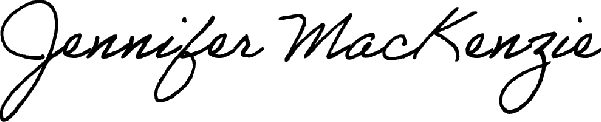 Jennifer MacKenzie